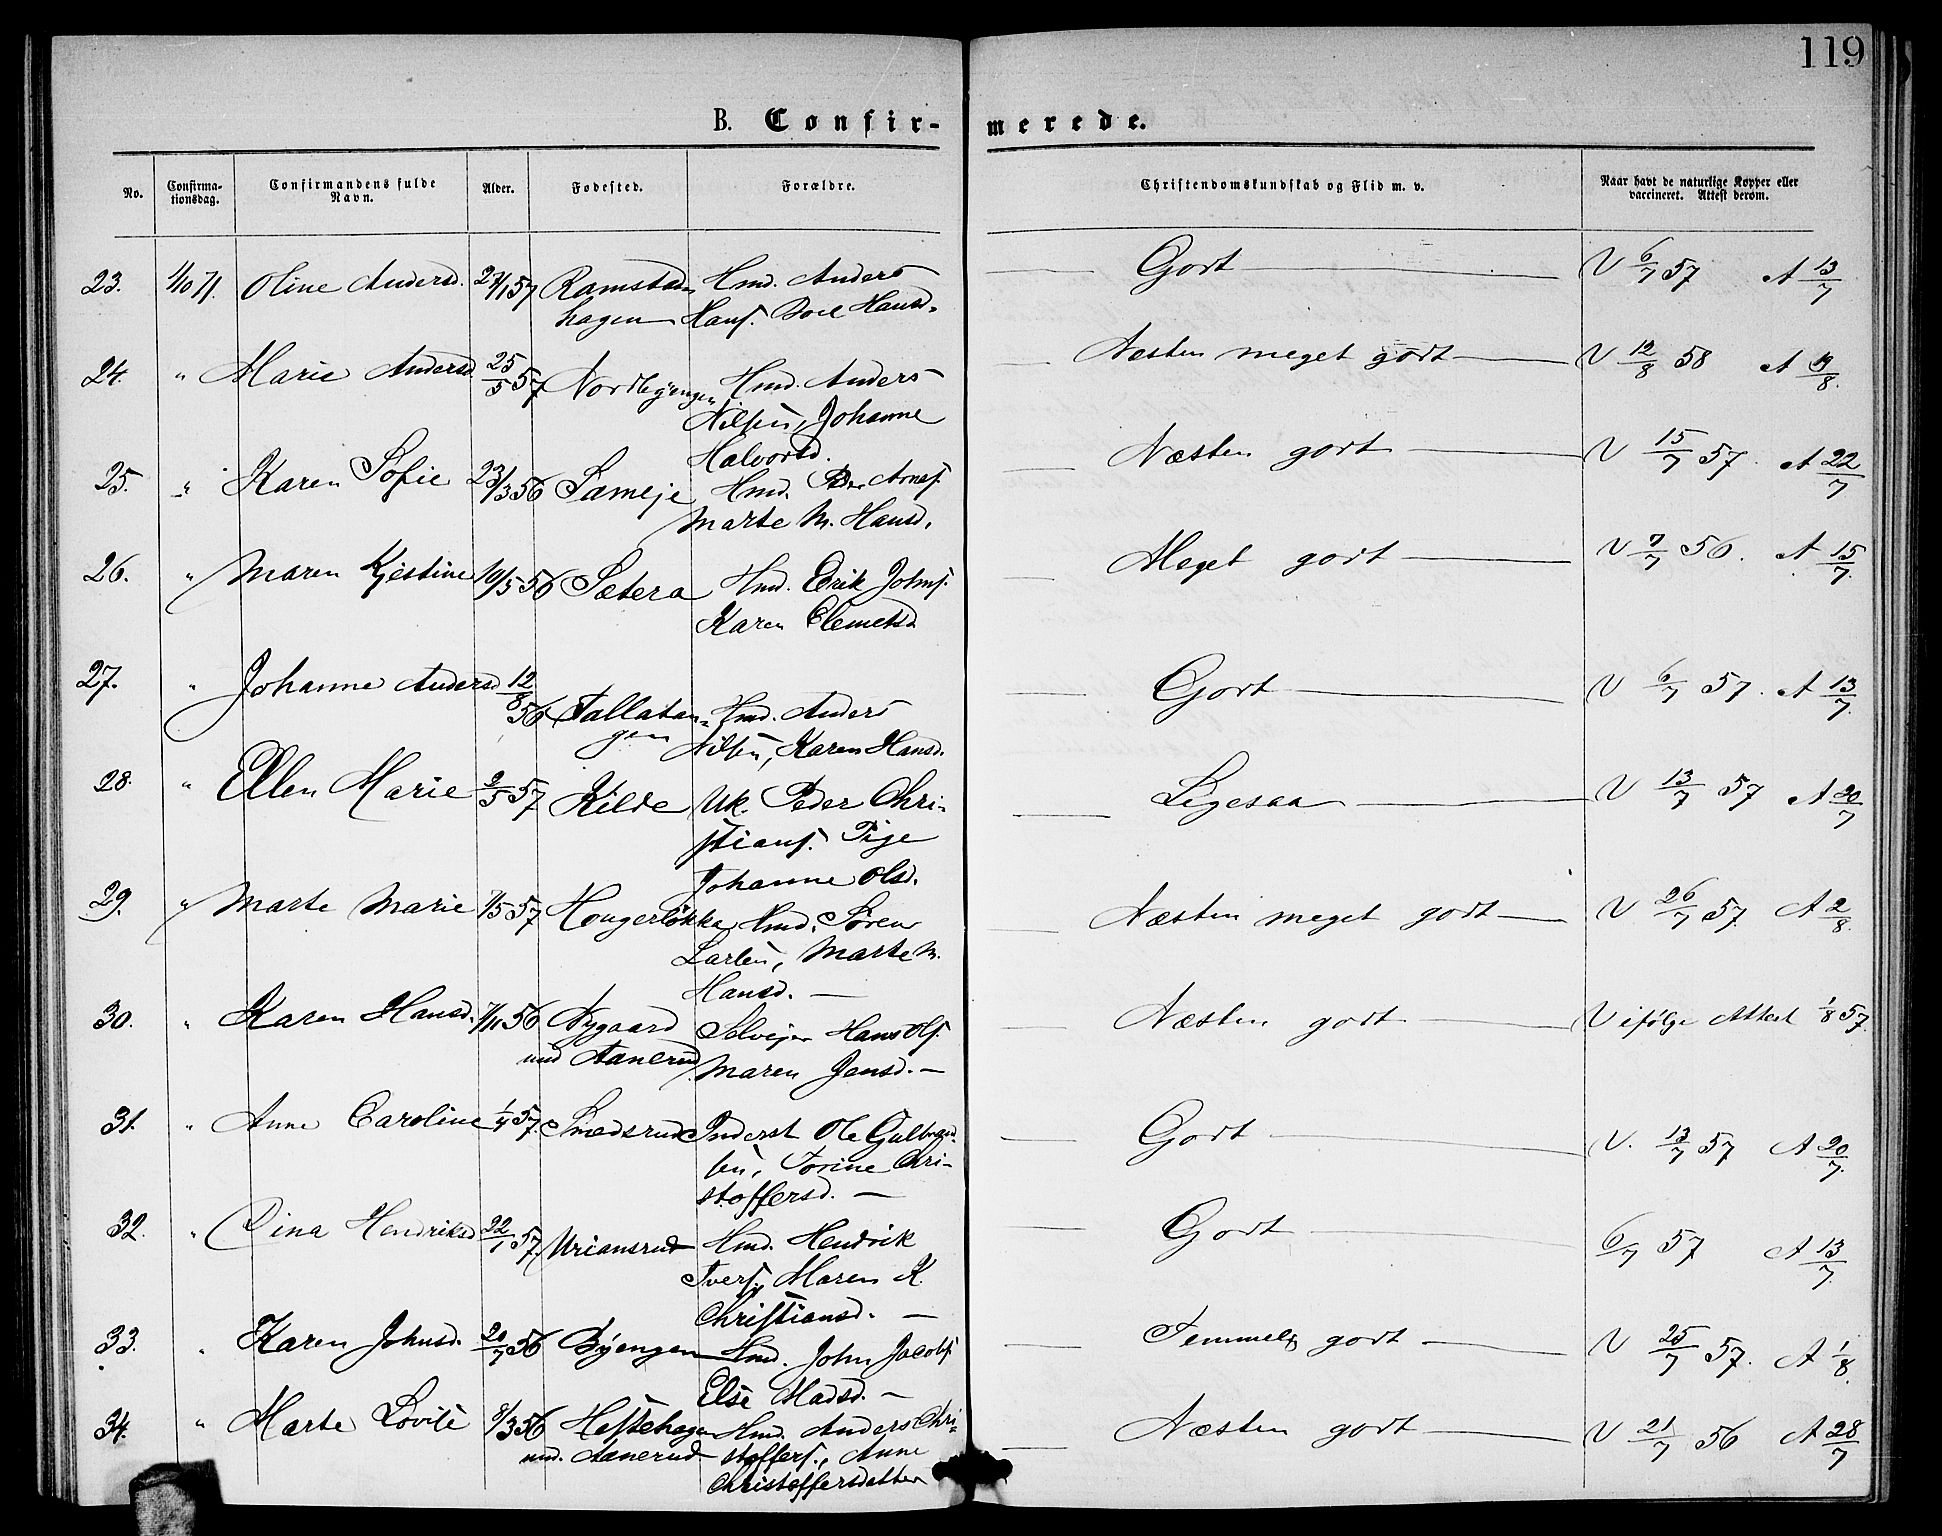 119
B. Confir- merede.
No. Confirma- tionsdag. Confirmandens fulde Navn. Alder. Fødested. Forældre. Christendomskundskab og Flid m. v. Naar havt de naturlige Kopper eller vaccineret. Attest derom.
23. 1/10 71. Oline Andersd. 27/1 57 Ramstad- Hmd. Anders Godt V 6/7 57 A 13/7
hagen Hansf. Boel Hansd.
24. " Marie Andersd. 25/5 57 Nordbyengen Hmd. Anders Næsten meget godt V 12/8 58 A 19/8.
Nilsen, Johanne
Halvorsd.
25. " Karen Sofie 23/3 56 Sameje Hmd. Peder Arnesf. Næsten godt V 15/7 57. A 22/7
Marte M. Hansd.
26. " Maren Kjestine 10/5 56 Sætera Hmd. Erik Johnsf. Meget godt V 7/7 56. A 15/7.
Karen Clemetsd.
27. " Johanne Andersd 12/8 56 Tallatan- Hmd. Anders Godt V 6/7 57. A 13/7.
gen Nilsen, Karen Hansd.
28. " Ellen Marie 2/5 57 Kilde Uk. Peder Chri- Ligesaa V 13/7 57 A 20/7
stiansf. Pige
Johanne Olsd.
29. " Marte Marie 7/5 57. Hougerløkka Hmd. Søren Næsten meget godt V 26/7 57. A 2/8.
Larsen, Marte M.
Hansd. —
30. " Karen Hansd. 7/11 56 Nygaard Selvejer Hans Olsf. Næsten godt V ifølge Attest 1/8 57.
und Aanerud Maren Jensd. —
31. " Anne Caroline 1/4 57. Smedsrud Inderst Ole Gulbrand- Godt V. 13/7 57 A 20/7.
sen, Torine Chri-
stoffersd. —
32. " Dina Hendriksd 22/1 57. Uriansrud Hmd. Hendrik Godt 6/7 57 A 13/7.
Iversf., Maren K.
Christiansd. —
33. " Karen Johnsd. 20/7 56 Byengen Hmd. John Jacobsf. Temmelig godt V 25/7 57. A 1/8.
Else Madsd. —
34. " Marte Lovise 8/3 56 Hestehagen Hmd. Anders Chri- Næsten godt V 21/7 56 A 28/7
und. Aanerud stoffersf., Anne
Christoffersdatter